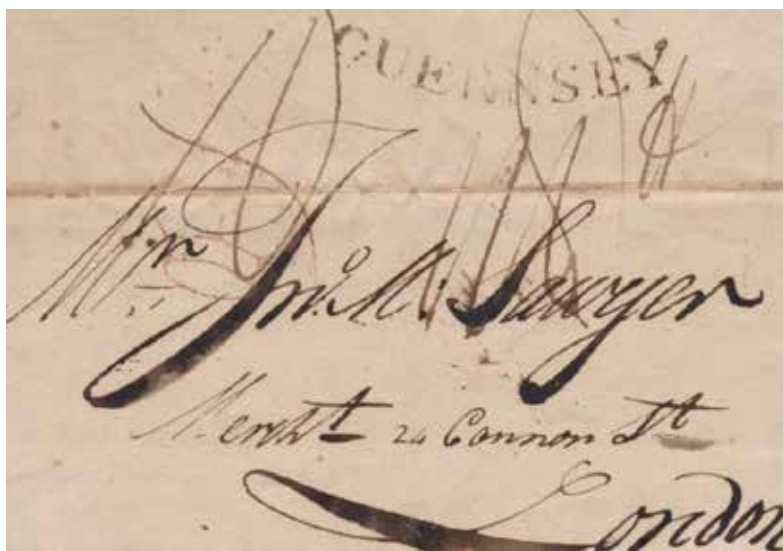 GUERNSEY
Mr. Jno. M. Sawyer
Mercht 24 Cannon St
London